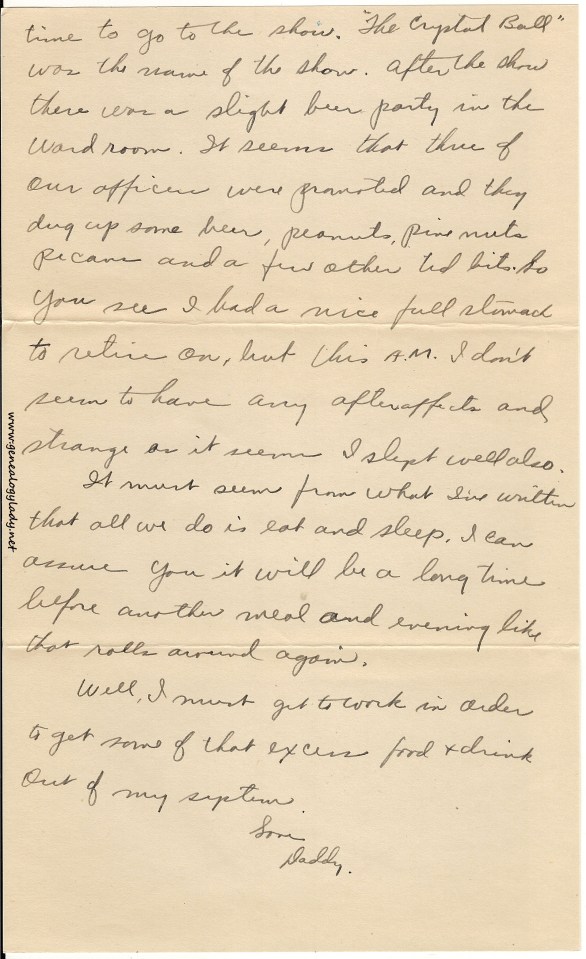 time to go to the show. "The Crystal Ball"
was the name of the show. After the show
there was a slight beer party in the
Ward room. It seems that three of
our officers were promoted and they
dug up some beer, peanuts, pine nuts
pecans and a few other tid bits. So
you see I had a nice full stomach
to retire on, but this A.M. I don't
seem to have any afteraffects and,
strange as it seems I slept well also.
It must seem from what I've written
that all we do is eat and sleep. I can
assure you it will be a long time
before another meal and evening like
that rolls around again.
Well, I must get to work in order
to get some of that excess food + drink
out of my system.
Love
Daddy.
www.genealogylady.net